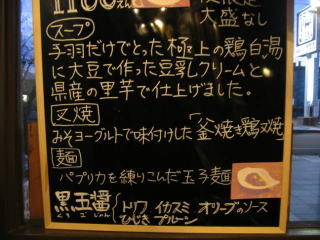 1100えん
大盛なし
スープ
手羽だけでとった極上の鶏白湯
に大豆で作った豆乳クリームと
県産の里芋で仕上げました。
叉焼
みそヨーグルトで味付けした「釜焼き鶏叉焼」
麺
パプリカを練りこんだ玉子麺
黒玉醤
くろごじゃん
トリワ イカスミ オリーブのソース
ひじき プルーン